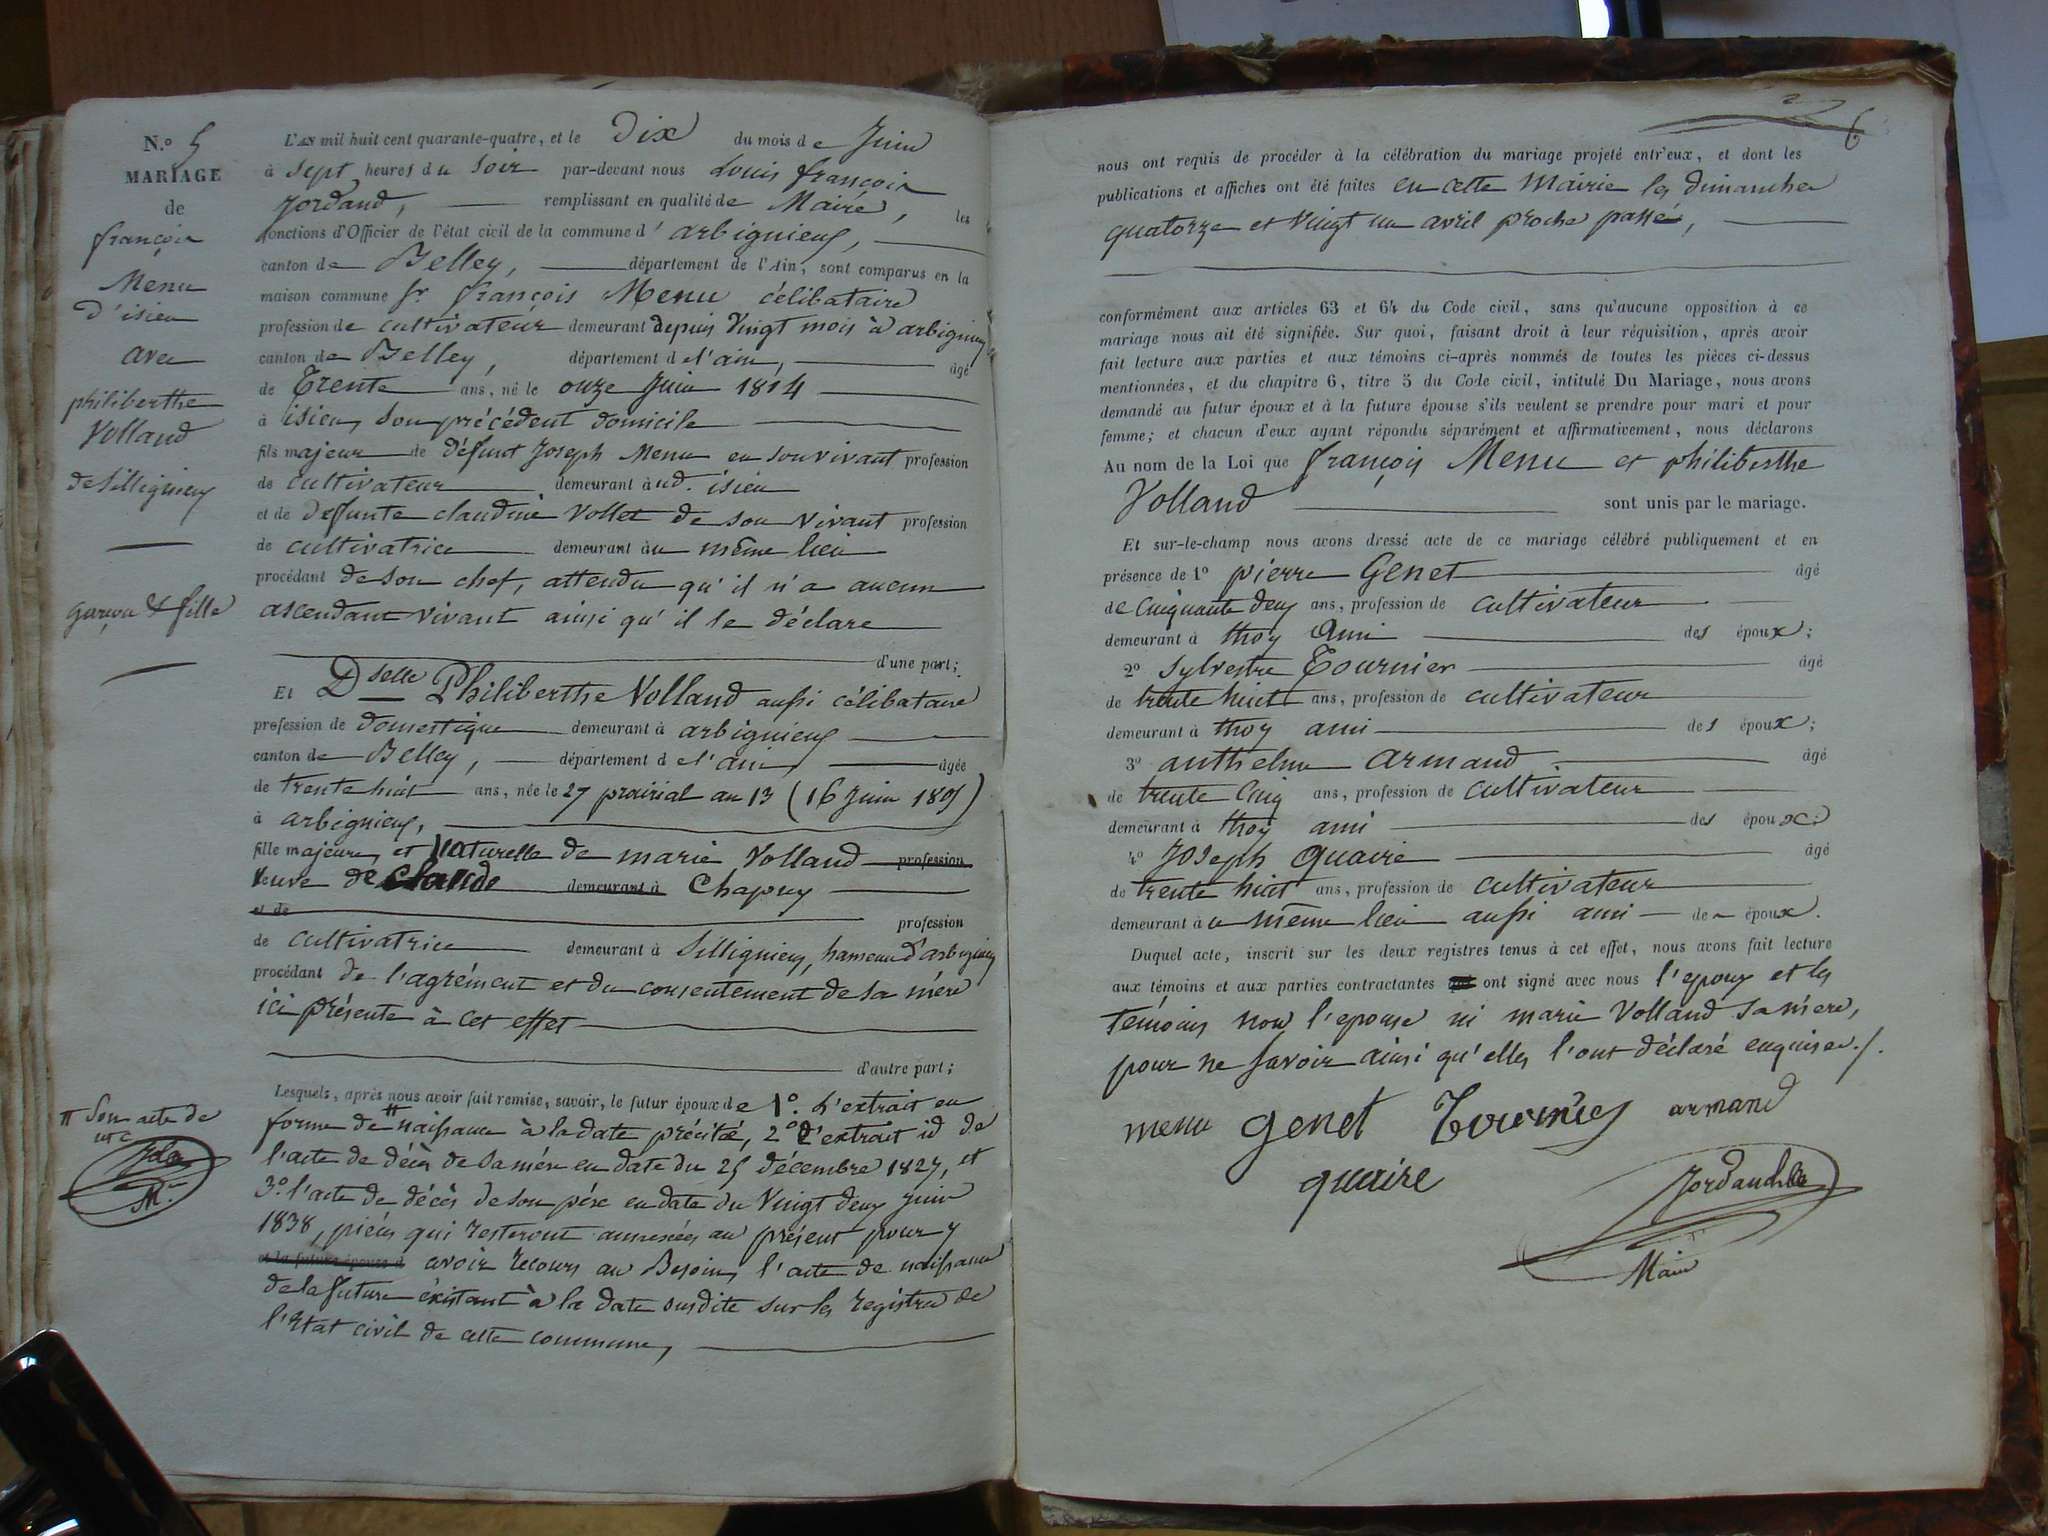 N.o 5
MARIAGE
de
françois
Menu
d'isieu
avec
philiberthe
Volland
de Sillignieu
garçon & fille
L'AN mil huit cent quarante-quatre, et le Dix du mois de Juin
à sept heures du Soir par-devant nous Louis françois
Jordand, remplissant en qualité de Maire, les
fonctions d'Officier de l'état civil de la commune d'arbignieu,
canton de Belley, département de l'Ain, sont comparus en la
maison commune Sr françois Menu célibataire
profession de cultivateur demeurant depuis Vingt mois à arbignieu
canton de Belley, département de l'ain, âgé
de Trente ans, né le onze Juin 1814
à isieu, son précédent domicile
fils majeur de défunt Joseph Menu en son vivant profession
de cultivateur demeurant au d. isieu
et de defunte claudine Vollet de son vivant profession
de cultivatrice demeurant au même lieu
procédant de son chef, attendu qu'il n'a aucun
ascendant vivant ainsi qu'il le déclare
d'une part;
Et Dselle Philiberthe Volland aussi célibataire
profession de domestique demeurant à arbignieu
canton de Belley, département de l'ain, âgée
de trente huit ans, née le 27 prairial an 13 (16 Juin 1805)
à arbignieu,
fille majeure, et Naturelle de marie Volland profession
Veuve de Claude demeurant à Chapuy
et de profession
de cultivatrice demeurant à Sillignieu, hameau d'arbignieu
procédant de l'agrément et du consentement de sa mère
ici présente à cet effet
d'autre part;
Lesquels, après nous avoir fait remise, savoir, le futur époux de 1o. L'extrait en
forme de # naissance à la date précitée, 2o L'extrait id de
l'acte de décès de sa mère en date du 25 décembre 1827, et
3o. l'acte de décès de son père en date du Vingt deux juin
1838, pièces qui resteront annexées au présent pour y
et la future épouse d avoir recours au Besoin, l'acte de naissance
de la future existant à la date susdite sur les registres de
l'Etat civil de cette commune,
# Son acte de
Mre
6
nous ont requis de procéder à la célébration du mariage projeté entr'eux, et dont les
publications et affiches ont été faites en cette Mairie les dimanches
quatorze et vingt un avril proche passé,
conformément aux articles 63 et 64 du Code civil, sans qu'aucune opposition à ce
mariage nous ait été signifiée. Sur quoi, faisant droit à leur réquisition, après avoir
fait lecture aux parties et aux témoins ci-après nommés de toutes les pièces ci-dessus
mentionnées, et du chapitre 6, titre 5 du Code civil, intitulé Du Mariage, nous avons
demandé au futur époux et à la future épouse s'ils veulent se prendre pour mari et pour
femme; et chacun d'eux ayant répondu séparément et affirmativement, nous déclarons
Au nom de la Loi que françois Menu et philiberthe
Volland sont unis par le mariage.
Et sur-le-champ nous avons dressé acte de ce mariage célébré publiquement et en
présence de 1o pierre Genet âgé
de cinquante deux ans, profession de cultivateur
demeurant à thoy ami des époux;
2o Sylvestre Tournier âgé
de trente huit ans, profession de cultivateur
demeurant à thoy ami des époux;
3o anthelme armand âgé
de trente cinq ans, profession de cultivateur
demeurant à thoy ami des époux;
4o Joseph quaire âgé
de trente huit ans, profession de cultivateur
demeurant au même lieu aussi ami des époux.
Duquel acte, inscrit sur les deux registres tenus à cet effet, nous avons fait lecture
aux témoins et aux parties contractantes ont signé avec nous l'epoux et les
témoins non l'epouse ni marie Volland sa mère,
pour ne savoir ainsi qu'elles l'ont déclaré enquises./.
menu genet Tournier armand
quaire
Jordand
Maire